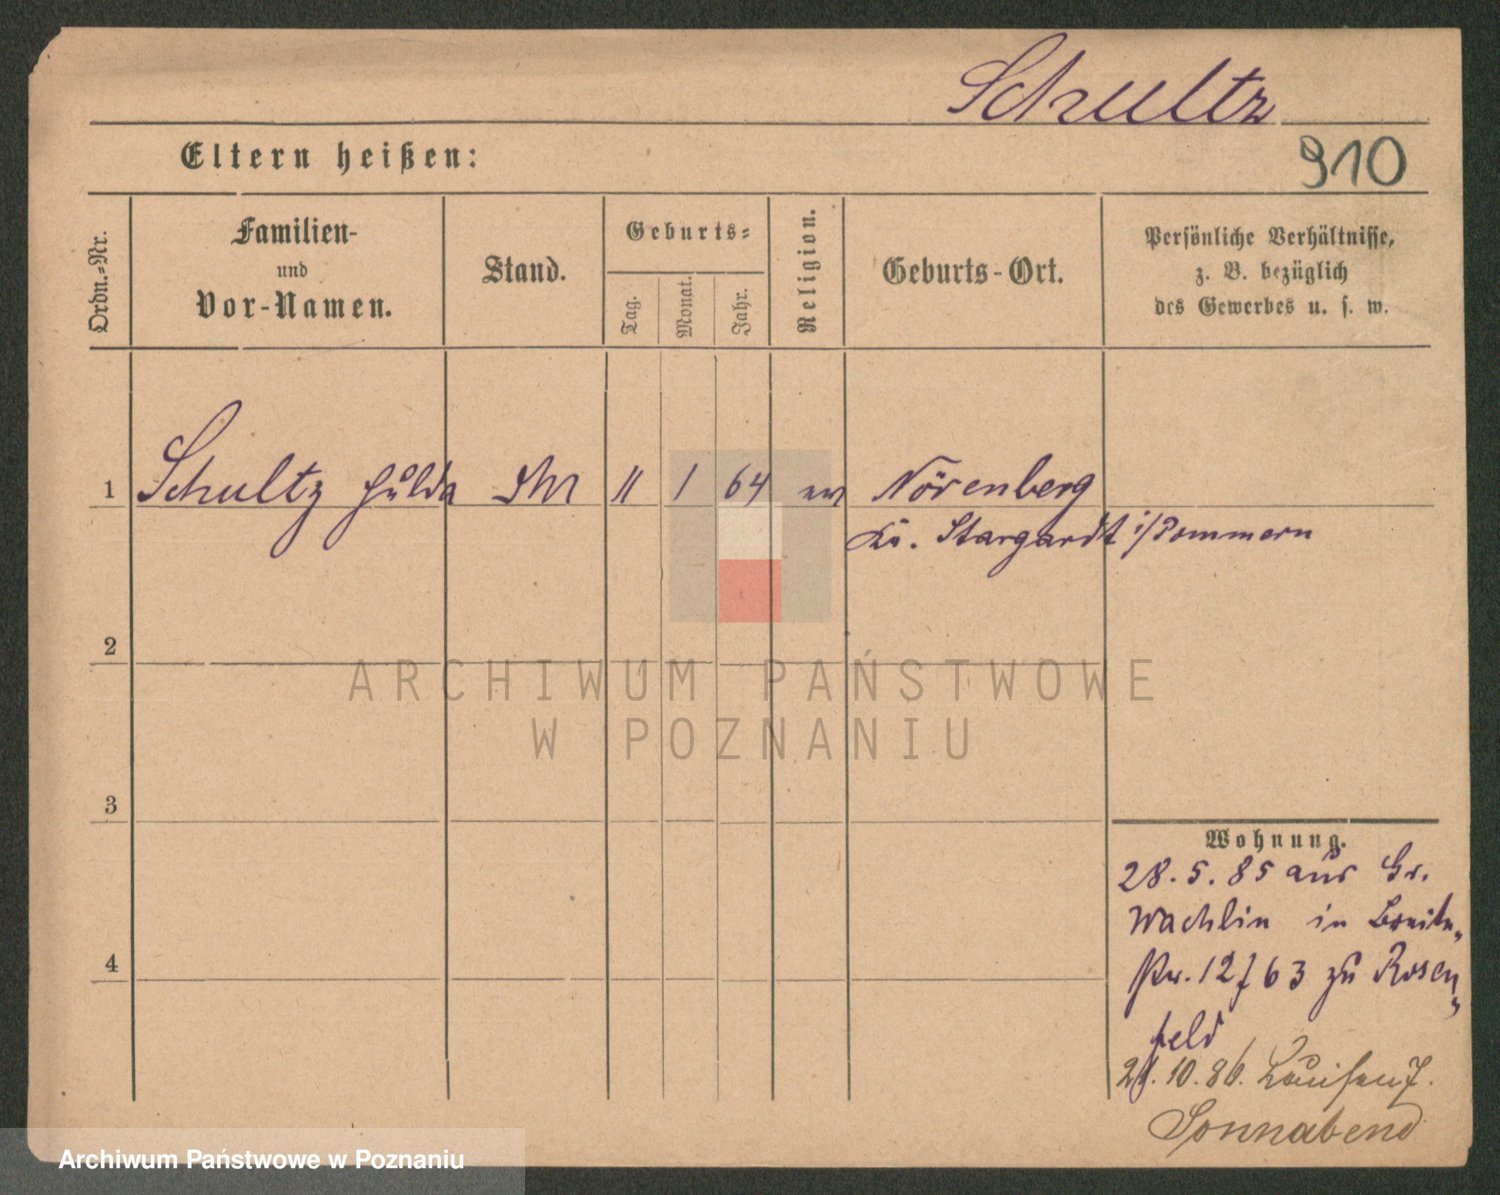 Schultz
Eltern heißen:
910
Ordn.=Nr.
Familien-
und
Vor-Namen.
Stand.
Geburts=
Tag.
Monat.
Jahr.
Religion.
Geburts-Ort.
Persönliche Verhältnisse,
z. B. bezüglich
des Gewerbes u. s. w.
1 Schultz Hulda 11 1 64 ev Nörenberg
Kr. Stargardt i/Pommern
2
ARCHIWUM PAŃSTWOWE
W POZNANIU
3
Wohnung.
28.5.85 aus Gr.
Wachlin in Breite=
str. 12 zu Rosen=
feld
10.86. Louisenstr.
Sonnabend
4
Archiwum Państwowe w Poznaniu